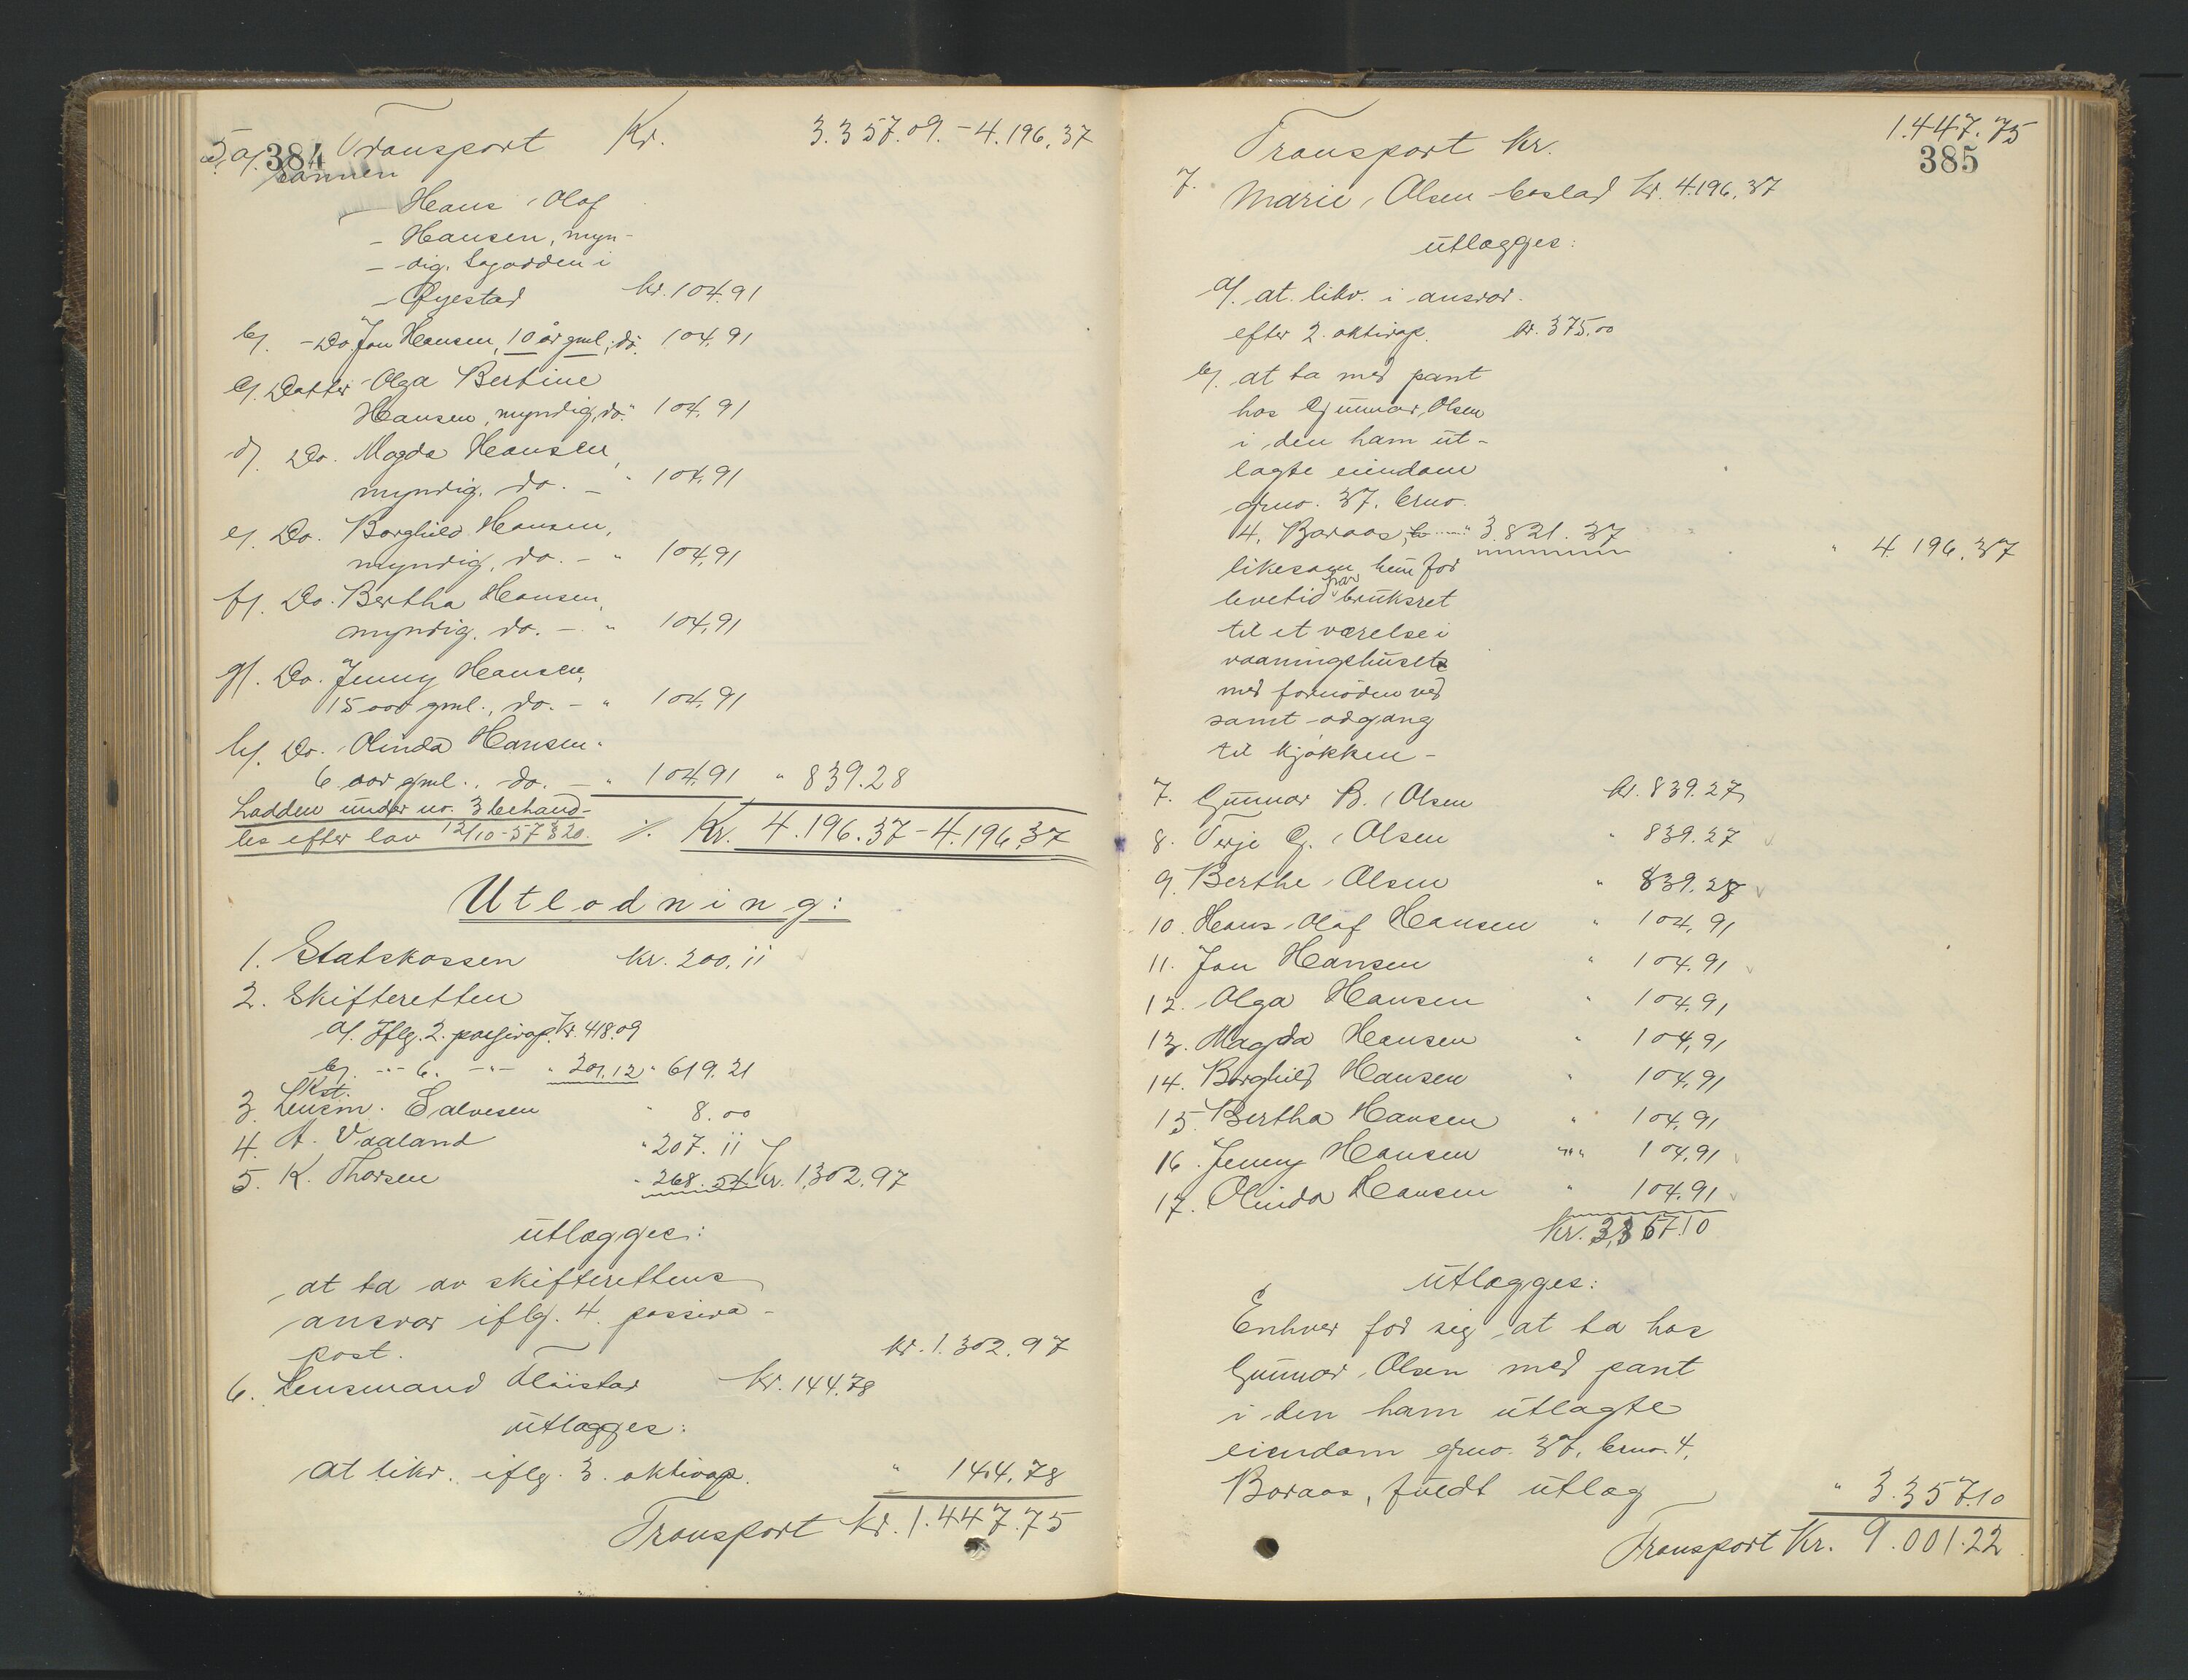 384
Transport Kr. 3.357.09. - 4.196,37
5, a/. Sönnen
- Hans Olaf
- Hansen, myn-
- dig,
- Øyestad kr. 104.91
b/. - Do. Jon Hansen, 10 år gml, do. 104,91
c/. Datter Olga Bertine
Hansen, myndig, do. " 104,91
d/. Do. Magda Hansen,
myndig, do. - " 104,91
e/. Do. Borghild Hansen,
myndig, do. - " 104,91
f/. Do. Bertha Hansen,
myndig, do. - " 104,91
g/. Do. Jenny Hansen,
15 aar gml., do. - " 104,91
h/. Do. Olinda Hansen.
6 aar gml., do. - " 104,91 " 839.28
Lodden under no. 3 behand-
les efter lov 12/10-57 § 20. ./. Kr. 4.196.37 - 4.196,37
Utlodning:
1. Statskassen Kr. 200, 11
2. Skifteretten
a/. Iflg. 2. passivap. Kr. 418.09
b/. -"- 6. -"- " 201.12 " 619.21
3. Kst. Lensm. Salvesen " 8.00
4. A. Vaaland " 207. 11
5. K. Thorsen " 268.54 Kr. 1,302.97
utlægges:
at ta av skifterettens
ansvar iflg. 4. passiva-
post. kr. 1.302.97
6. Lensmand Kr. 144.78
utlægges:
at likv. iflg. 3. aktivap. " 144.78
Transport kr. 1.447.75
385
Transport Kr. 1.447.75
7. Marie Olsen boslod Kr. 4.196,37
utlægges:
a/. at likv. i ansvar
efter 2. aktivap. kr. 375.00
b/. at ta med pant
hos Gunnar Olsen
i den ham ut-
lagte eiendom
gno. 37, bruo.
4, Boraas, " 3.821.37 " 4.196,37
likesom hun for
levetid har bruksret
til et værelse i
vaaningshuset
med fornöden ved
samt adgang
til kjökken -
7. Gunnar B. Olsen kr. 839.27
8. Terje G. Olsen " 839.27
9. Berthe Olsen " 839.28
10. Hans Olaf Hansen " 104,91
11. Jon Hansen " 104.91
12. Olga Hansen " 104,91
13. Magda Hansen " 104,91
14. Borghild Hansen " 104,91
15. Bertha Hansen " 104,91
16. Jenny Hansen " 104,91
17. Olinda Hansen " 104.91
Kr. 3,357.10
utlægges:
Enhver for sig at ta hos
Gunnar Olsen med pant
i den ham utlagte
eiendom gno. 37, bruo. 4,
Boraas, fuldt utlæg " 3.357.10
Transport Kr. 9.001.22